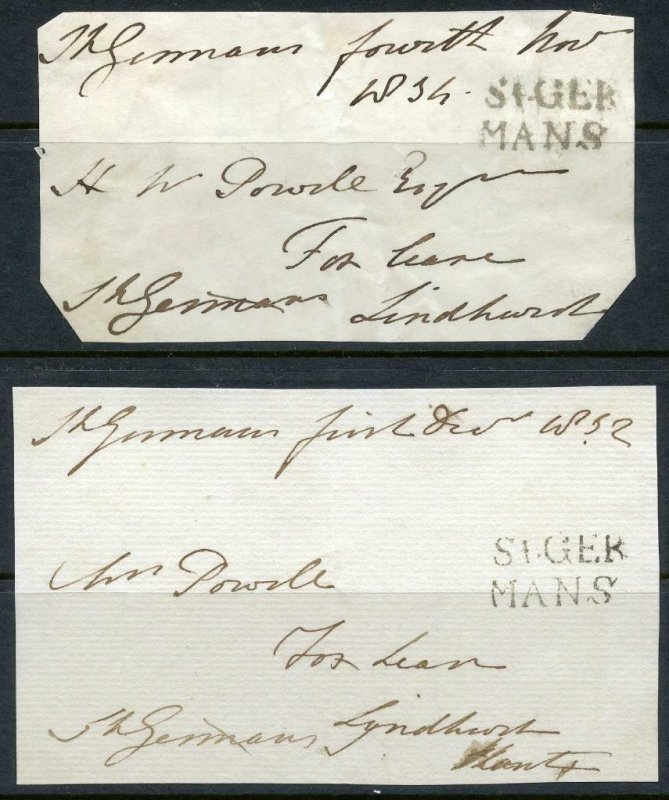 St Germans fourth Nov
1834.
ST. GER
MANS
H W Powell Esqr
Fox lease
St Germans Lindhurst
St Germans first Decr 1832
ST. GER
MANS
Mrs Powell
Fox Leas
St Germans Lyndhurst
Hants